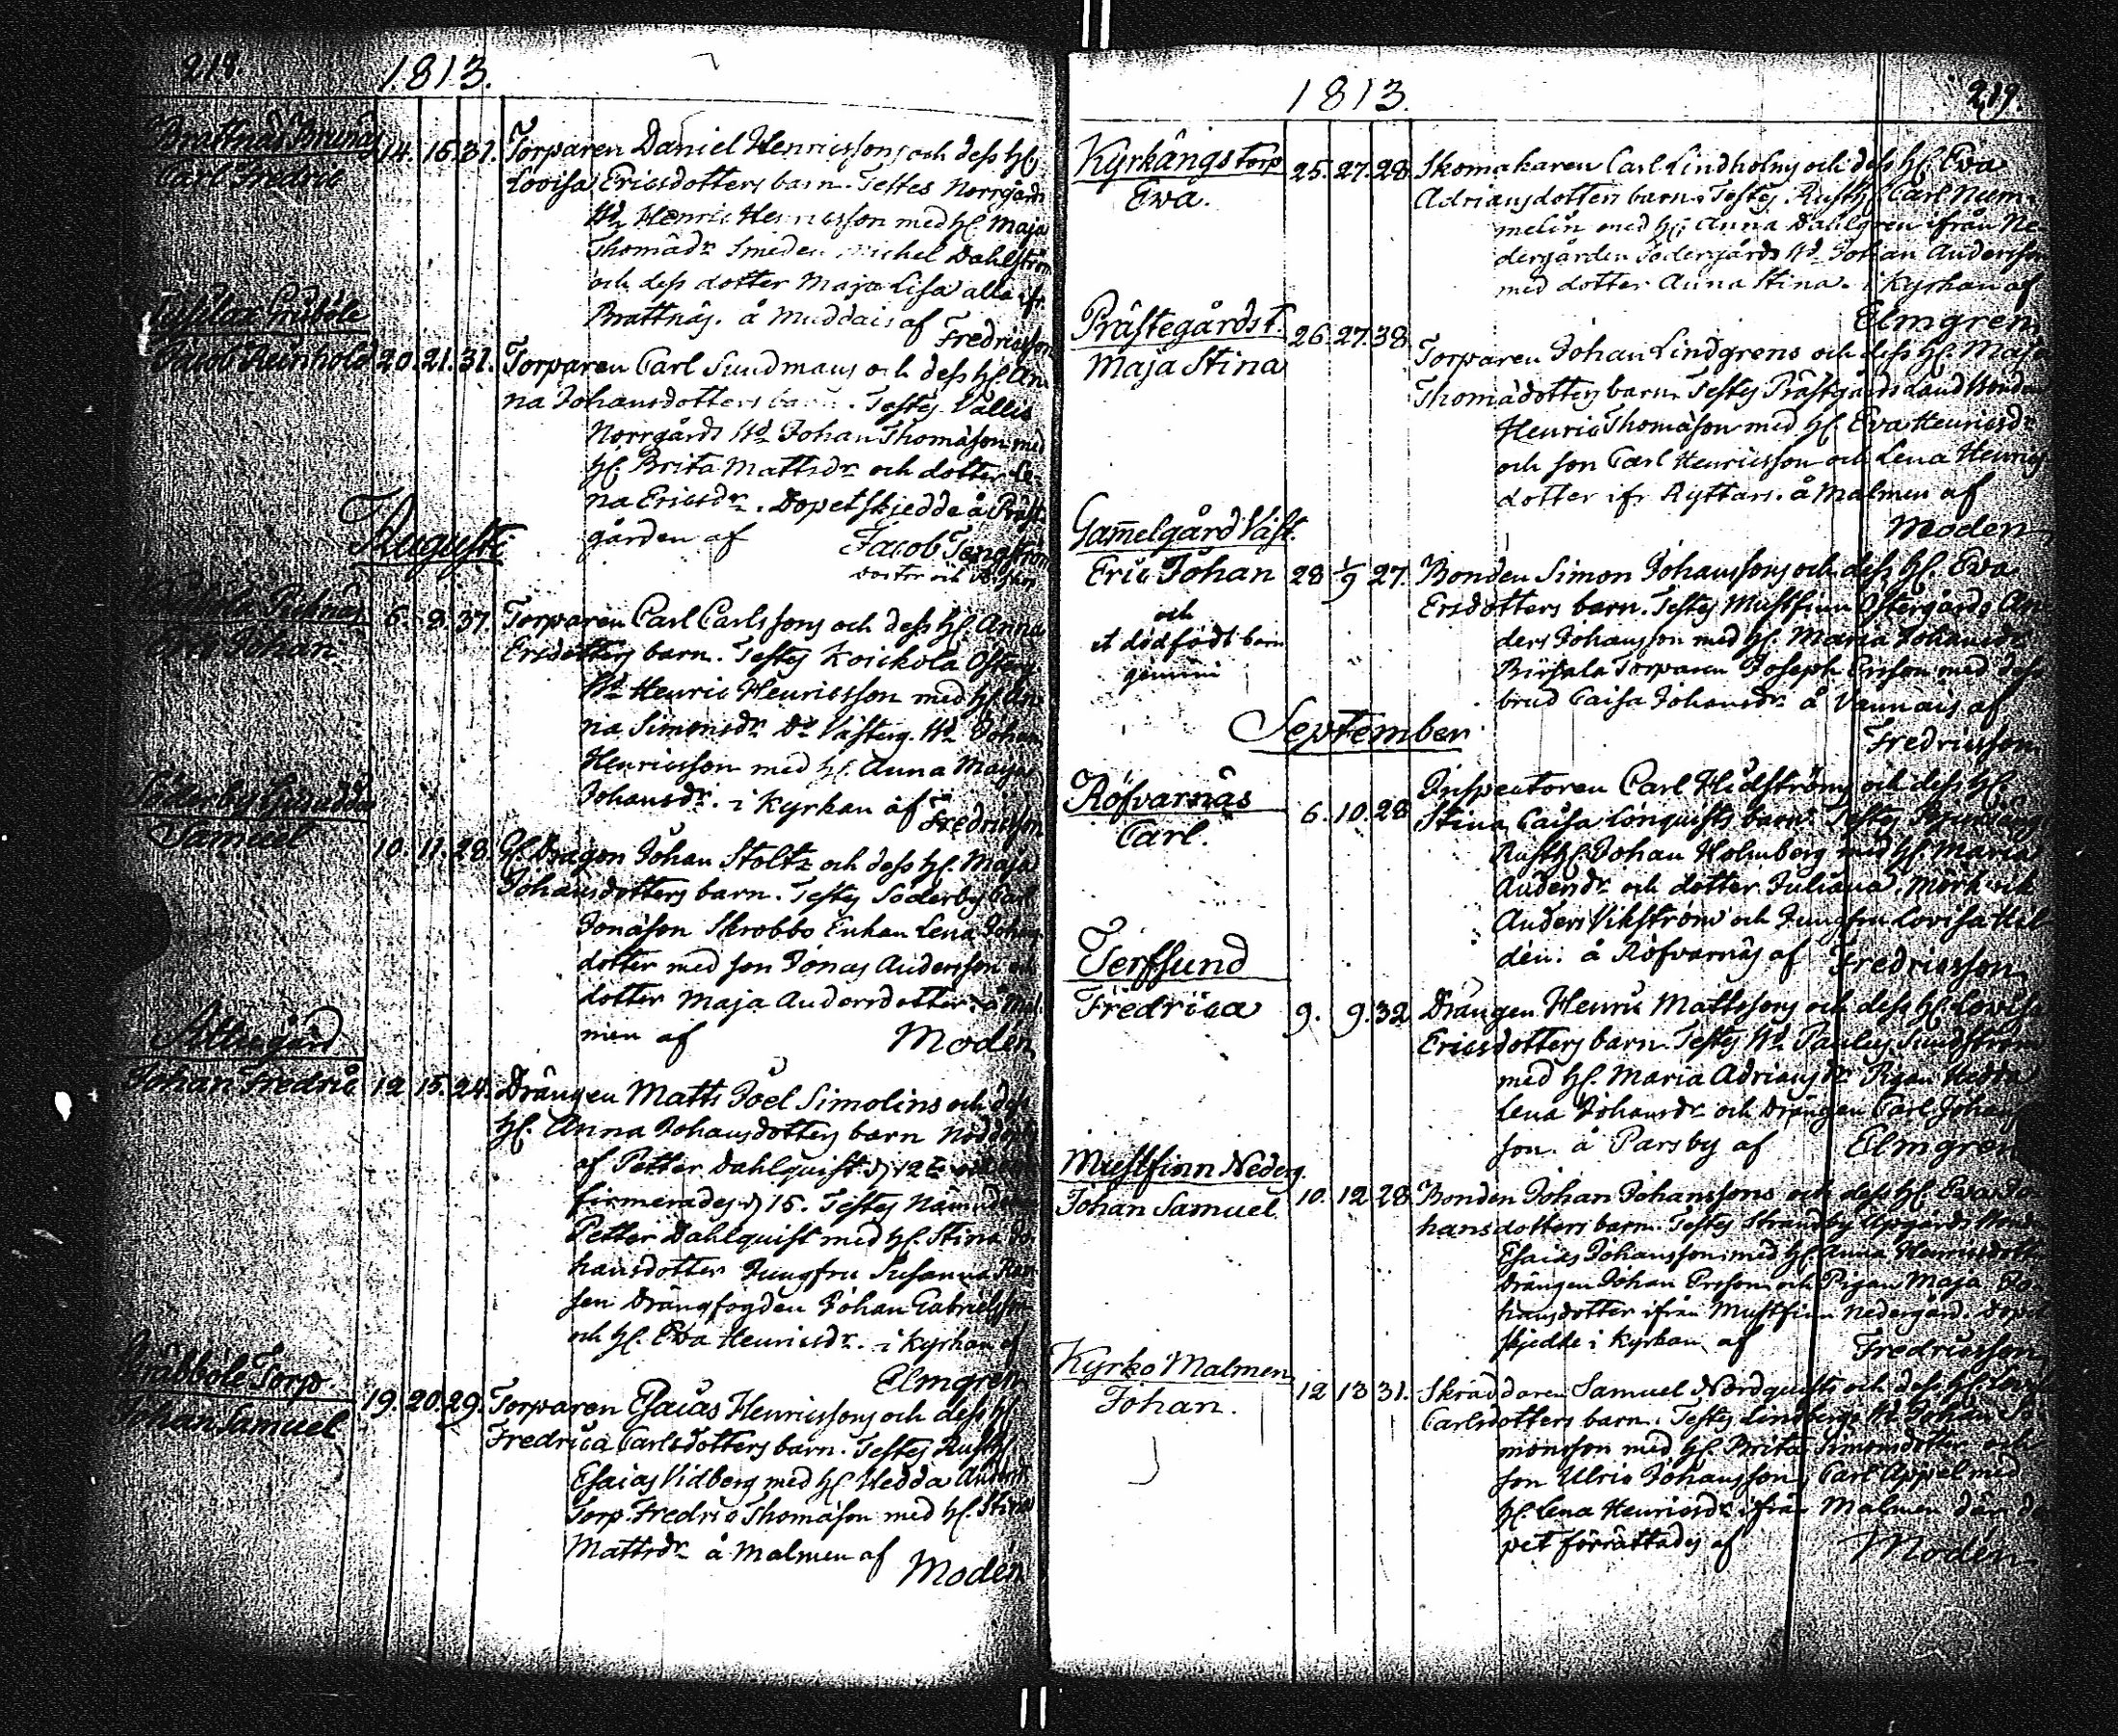 218.
1813.
Brattnäs
Carl Fredric
14. 15. 31. Torparen Daniel Henricssons och dess H.
Lovisa Ericsdotters barn. Testes Norrgårds
Bd. Henric Henricsson med H. Maja
Thomædr. Smeden Michel Dahlström
och dess dotter Maja Lisa alla ifr.
Brattnäs. å Muddais af Fredricsson
Jacob Reinhold 20. 21. 31. Torparen Carl Sundmans och dess H. An-
na Johansdotters barn. Testes Vallis
Norrgårds Bd. Johan Thomason med
H. Brita Mattsdr. och dotter Le-
na Ericsdr. Dopet skjedde å Präst-
gården af Jacob Tengström
Augusti
Johan
6. 8. 37. Torparen Carl Carlssons och dess H. Anna
Ersdotters barn. Testes Koickola Österg.
Bd. Henric Henricsson med H. An-
na Simonsdr. Do. Västerg. Bd. Johan
Henricsson med H. Anna Maja
Johansdr. i Kyrkan af Fredricsson
Söderby
Samuel
10. 11. 28. H. Dragon Johan Stoltz och dess H. Maja
Johansdotters barn. Testes Söderby Carl
Jonason Skrobbo Enkan Lena Johans-
dotter med son Jonas Andersson och
dotter Maja Andersdotter. å Mal-
men af Modén
Attu gård
Johan Fredric 12 15. 24. Drängen Matts Joel Simolins och dess
H. Anna Johansdotters barn Nöddöpt
af Petter Dahlquist d. 12te och con-
firmerades d. 15. Testes Nämndem.
Petter Dahlquist med H. Stina Jo-
hansdotter Jungfru Susanna
sen Drängfogden Johan Gabrielsson
och H. Eva Henricsdr. i Kyrkan af
Elmgren
Gräbböle Torp
Johan Samuel
19. 20. 29. Torparen Esaias Henricssons och dess H.
Fredrica Carlsdotters barn. Testes Rusth.
Esaias Vidberg med H. Hedda Andersdr.
Torp. Fredric Thomason med H. Stina
Mattsdr. å Malmen af
Modén
1813.
219.
Kyrkängstorp
Eva.
25. 27. 28 Skomakaren Carl Lindholms och dess H. Eva
Adriansdotters barn. Testes Rusth. Carl Num-
melin med H. Anna Dahlgren ifrån Ne-
dergården Södergårds Bd. Johan Andersson
med dotter Anna Stina. i Kyrkan af
Elmgren
Prästegårdst.
Maja Stina
26. 27. 38. Torparen Johan Lindgrens och dess H. Maja
Thomædotters barn. Testes Prästgårds Land Bonden
Henric Thomason med H. Eva Henricsdr.
och son Carl Henricsson och Lena Henrics
dotter ifr. Ryttars. å Malmen af
Modén
Gammelgård Väst.
Eric Johan
28 1/9 27. Bonden Simon Johanssons och dess H. Eva
Ersdotters barn. Testes Mustfinn Östergårds An-
och
et dödfödt barn
gemini
ders Johansson med H. Maria Johansdr.
Torparen Joseph Ersson med dess
brud Caisa Johansdr. å Vannais af
Fredricsson
September
Röfvarnäs
Carl.
6. 10. 28 Inspectoren Carl Hidströms och dess H.
Stina Caisa Lönquists barn. Testes
Rusth. Johan Holmberg med H. Maria
Andersdr. och dotter Juliana. Mörkvik
Anders Vikström och Jungfru Lovisa Hil-
dén. å Röfvarnäs af Fredricsson
Terfsund
Fredrica
9. 9. 32 Drängen Henric Mattssons och dess H. Lovisa
Ericsdotters barn. Testes Bd. Paulus Sundström
med H. Maria Adriansdr. Pigan Hedda
Lena Johansdr. och Drängen Carl Johans-
son. å Parsby af Elmgren
Mustfinn Nederg.
Johan Samuel
10. 12 28. Bonden Johan Johanssons och dess H. Eva Jo-
hansdotters barn. Testes Strandby Upgårds Bonde
Esaias Johansson med H. Anna Henricsdotter
Drängen Johan Ersson och Pigan Maja Jo-
hansdotter ifrån Mustfinn Nedergård. Dopet
skjedde i Kyrkan af Fredricsson
Kyrko Malmen
Johan.
12 13 31. Skräddaren Samuel Nordquists och dess H.
Carlsdotters barn. Testes Lindbergs Bd. Johan Si-
monsson med H. Brita Simonsdotter och
son Ulric Johansson, Carl Appel med
H. Lena Henricsdr. ifrån Malmen där do-
pet förrättades af Modén.